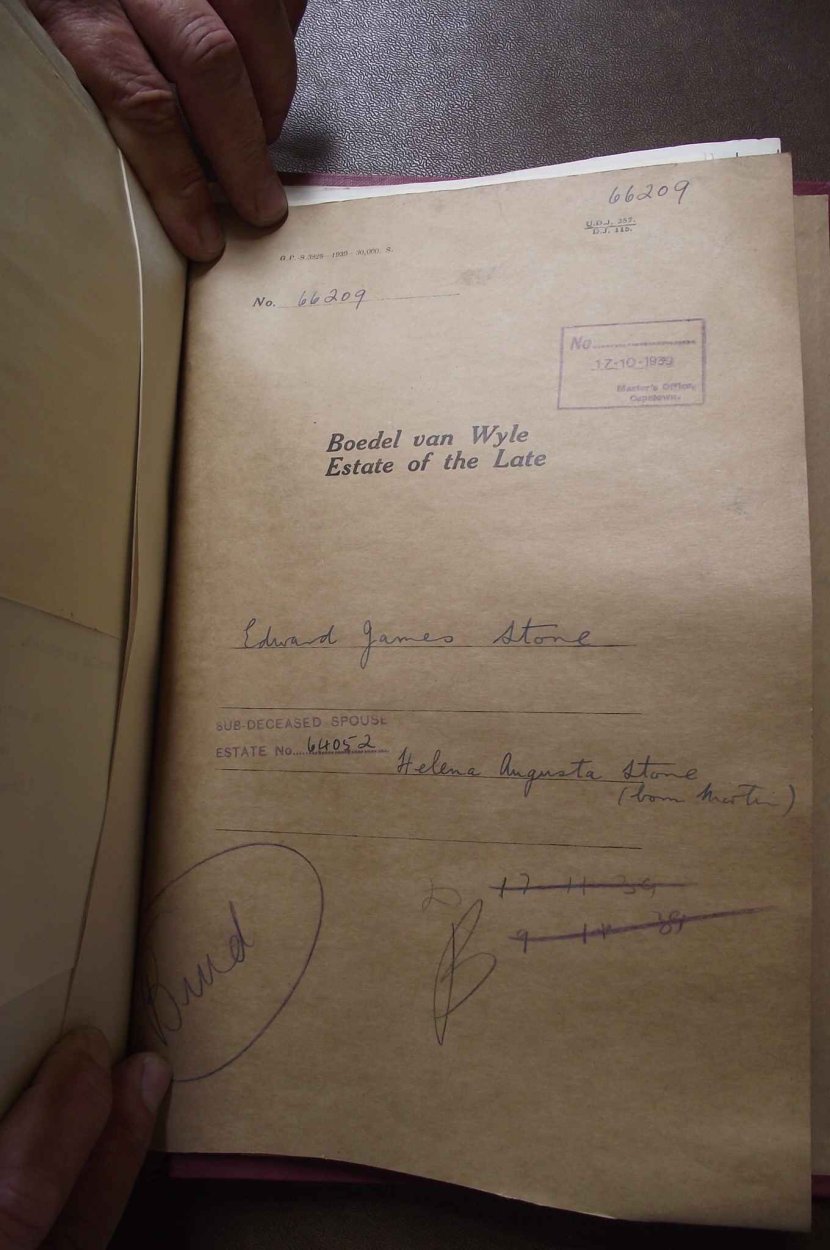 66209
U.D.J. 352.
D.J. 445.
G.P.-S.3929—1939—30,000. S.
No. 66209
No
17-10-1939
Master's Office,
Capetown.
Boedel van Wyle
Estate of the Late
Edward James Stone
SUB-DECEASED SPOUSE
ESTATE No. 64052
Helena Augusta Stone
(born Martin)
17 11 39
9 39
B